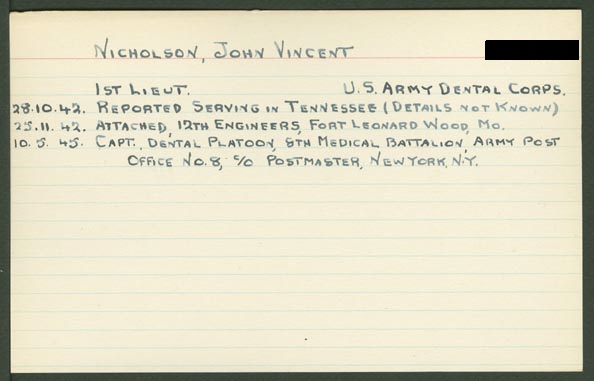 NICHOLSON, JOHN VINCENT
1ST LIEUT. U.S. ARMY DENTAL CORPS.
28.10.42. REPORTED SERVING IN TENNESSEE (DETAILS NOT KNOWN)
25.11.42. ATTACHED, 12TH ENGINEERS, FORT LEONARD WOOD, MO.
10.5.45. CAPT., DENTAL PLATOON, 8TH MEDICAL BATTALION, ARMY POST
OFFICE NO. 8, C/O POSTMASTER, NEW YORK, N.Y.